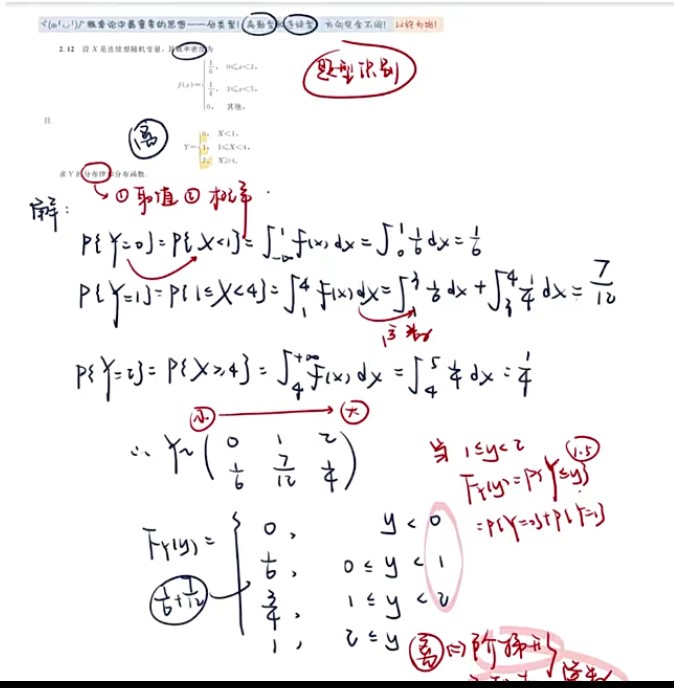 概率论中最重要的思想——分类型! 离散型和连续型 方向完全不同! 以终为始!
2.12 设 X 是连续型随机变量,其概率密度为
题型识别
f(x)= { 1/6, 0≤x<3,
1/4, 3≤x<5,
0, 其他,
且
离
Y= { 0, X<1,
1, 1≤X<4,
2, X≥4,
求 Y 的分布律和分布函数.
① 取值 ② 概率
解:
P{Y=0}=P{X<1}=∫_{-∞}^{1} f(x)dx=∫_0^1 1/6 dx=1/6
P{Y=1}=P{1≤X<4}=∫_1^4 f(x)dx=∫_1^3 1/6 dx+∫_3^4 1/4 dx=7/12
P{Y=2}=P{X≥4}=∫_4^{+∞} f(x)dx=∫_4^5 1/4 dx=1/4
小 → 大
∴ Y~ ( 0 1 2
1/6 7/12 1/4 )
当 1≤y<2 1.5
F_Y(y)=P{Y≤y}
=P{Y=0}+P{Y=1}
F_Y(y)= { 0, y<0
1/6, 0≤y<1
3/4, 1≤y<2
1, 2≤y
1/6+7/12
离 阶梯形